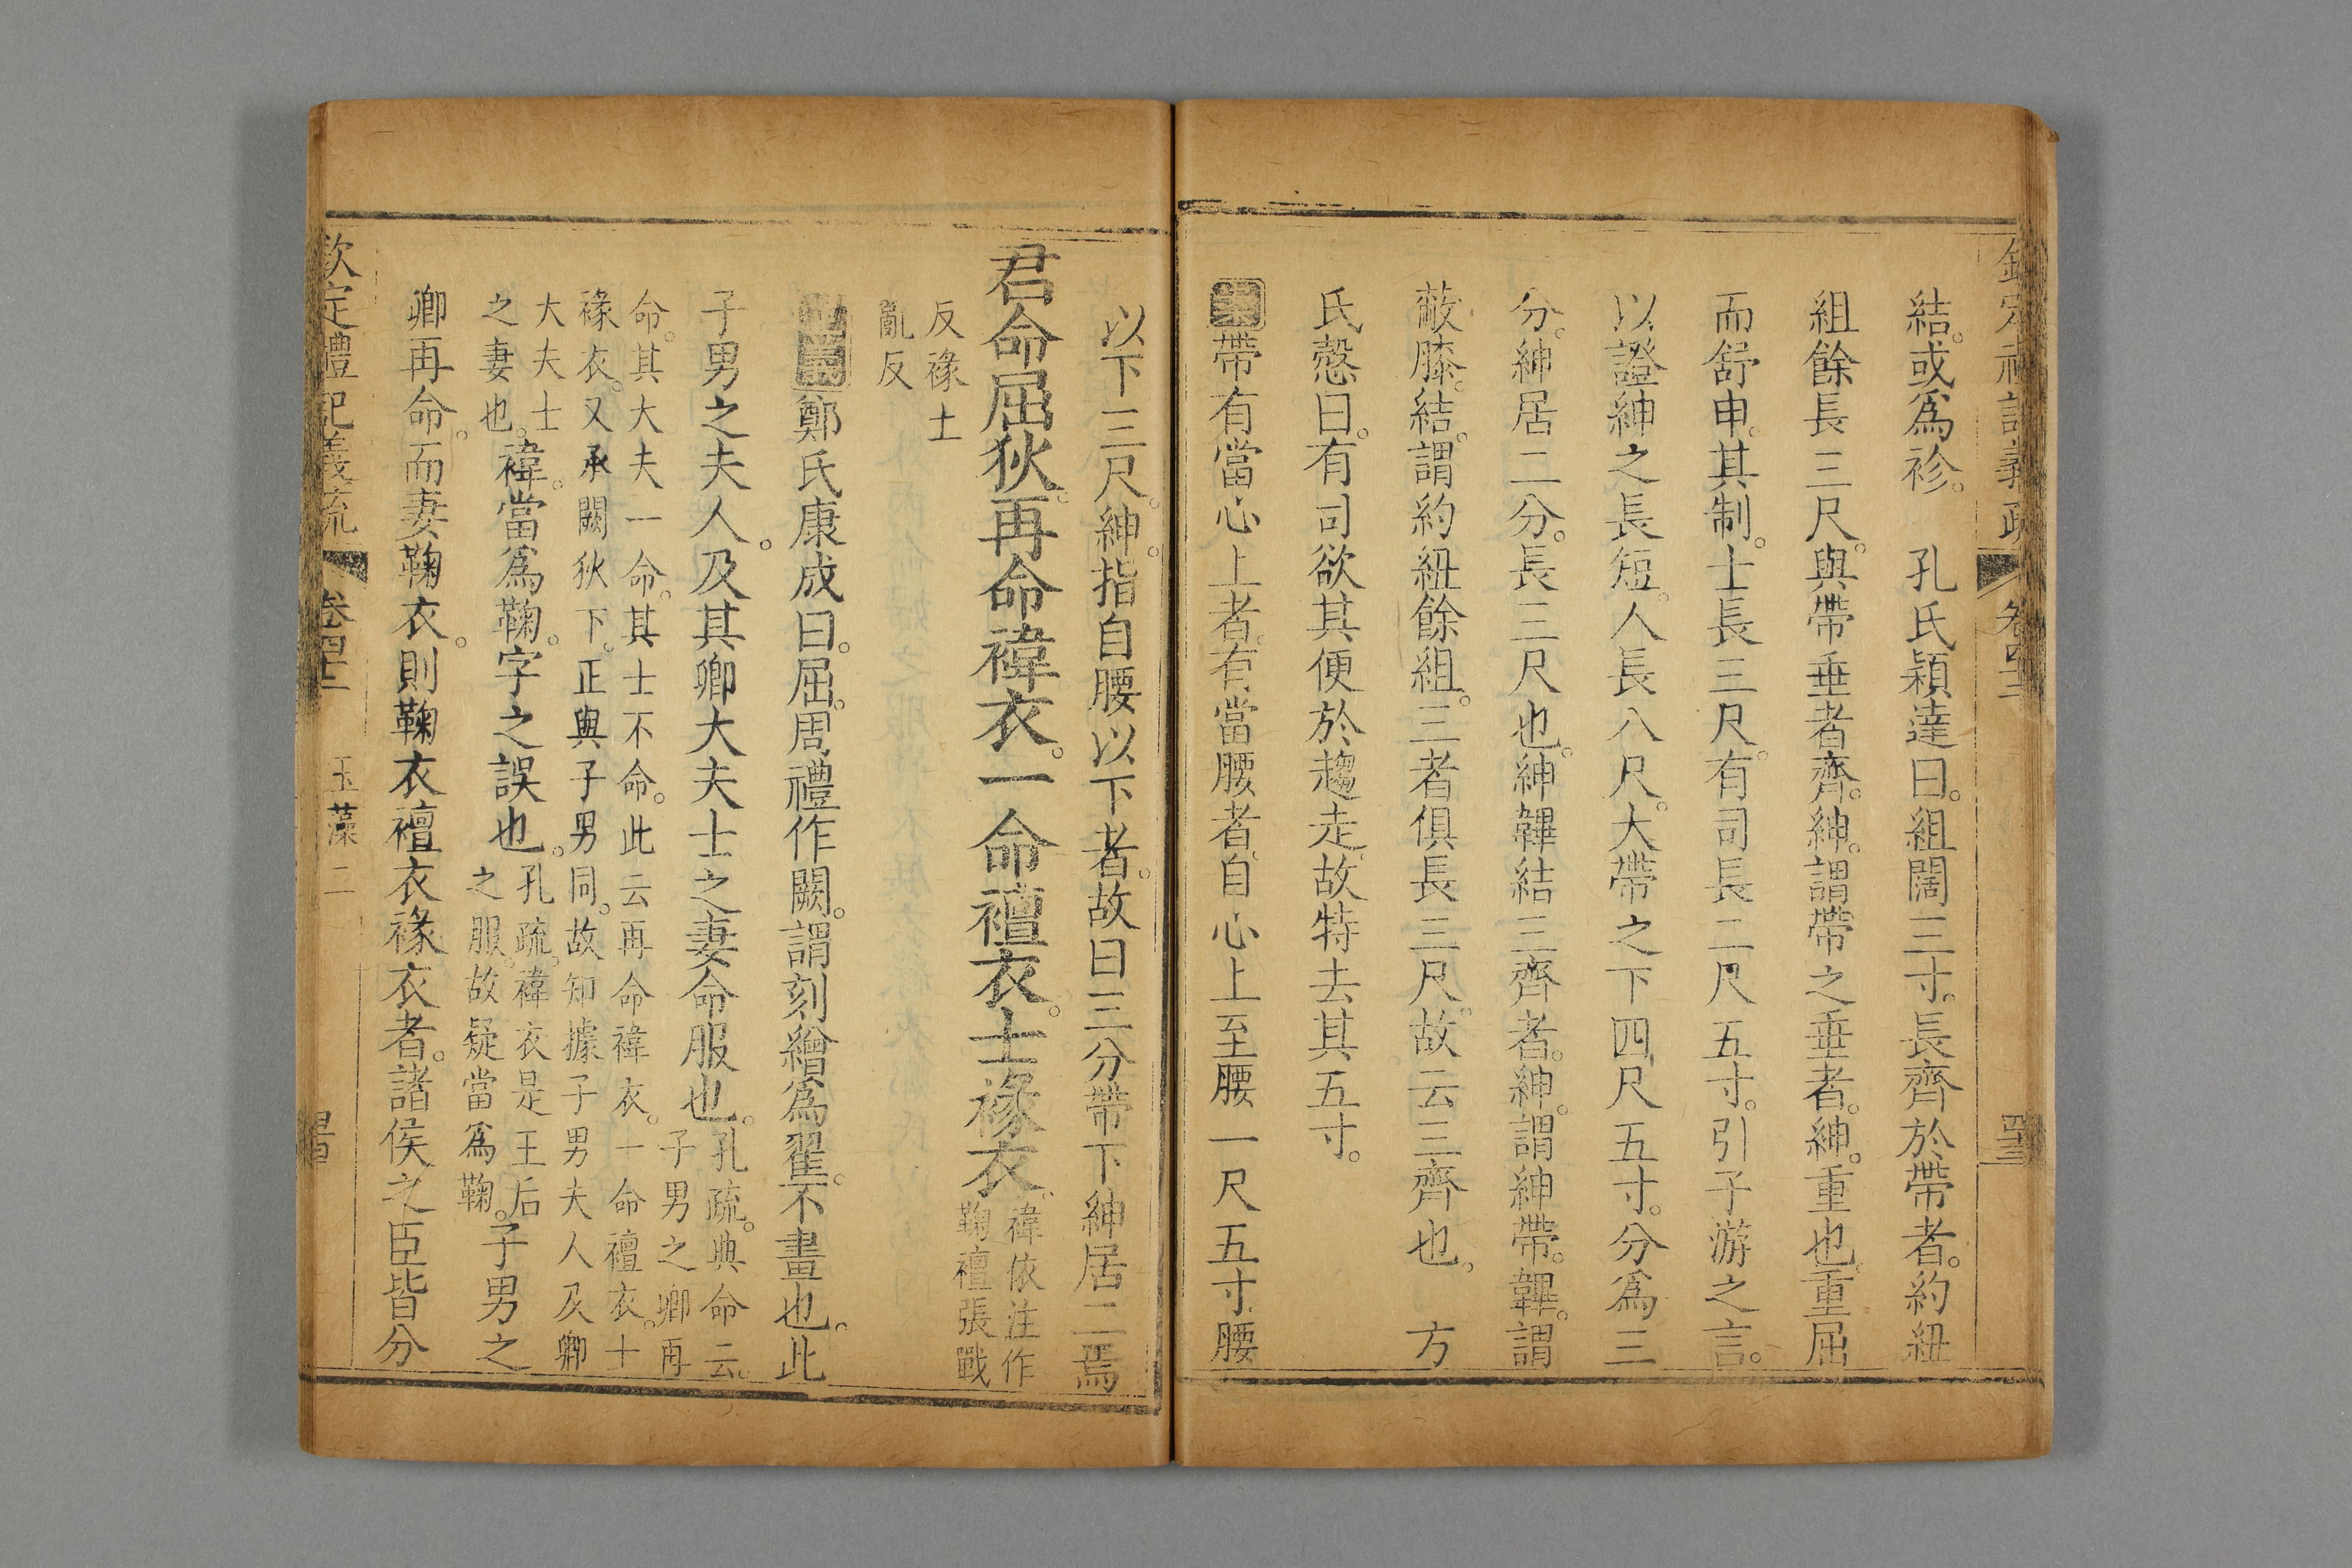 欽定禮記義疏 卷四十二
結。或爲衿。 孔氏穎達曰。組闊三寸。長齊於帶者。約紐
組餘長三尺。與帶垂者齊。紳。謂帶之垂者。紳。重也。重屈
而舒申。其制。士長三尺。有司長二尺五寸。引子游之言。
以證紳之長短。人長八尺。大帶之下四尺五寸。分爲三
分。紳居二分。長三尺也。紳韠結三齊者。紳。謂紳帶。韠。謂
蔽膝。結。謂約紐餘組。三者俱長三尺。故云三齊也。 方
氏慤曰。有司欲其便於趨走。故特去其五寸。
帶有當心上者。有當腰者。自心上至腰一尺五寸。腰
以下三尺。紳。指自腰以下者。故曰三分帶下紳居二焉
君命屈狄。再命褘衣。一命襢衣。士褖衣。褘依注作
鞠襢張戰
反褖土
亂反
鄭氏康成曰。屈。周禮作闕。謂刻繒爲翟。不畫也。此
子男之夫人。及其卿大夫士之妻命服也。孔疏。典命云。
子男之卿再
命。其大夫一命。其士不命。此云再命褘衣。一命襢衣。士
褖衣。又承闕狄下。正與子男同。故知據子男夫人及卿
大夫士
之妻也。褘。當爲鞠。字之誤也。孔疏。褘衣是王后
之服。故疑當爲鞠。子男之
卿再命。而妻鞠衣。則鞠衣襢衣褖衣者。諸侯之臣皆分
欽定禮記義疏 卷四十二 玉藻二